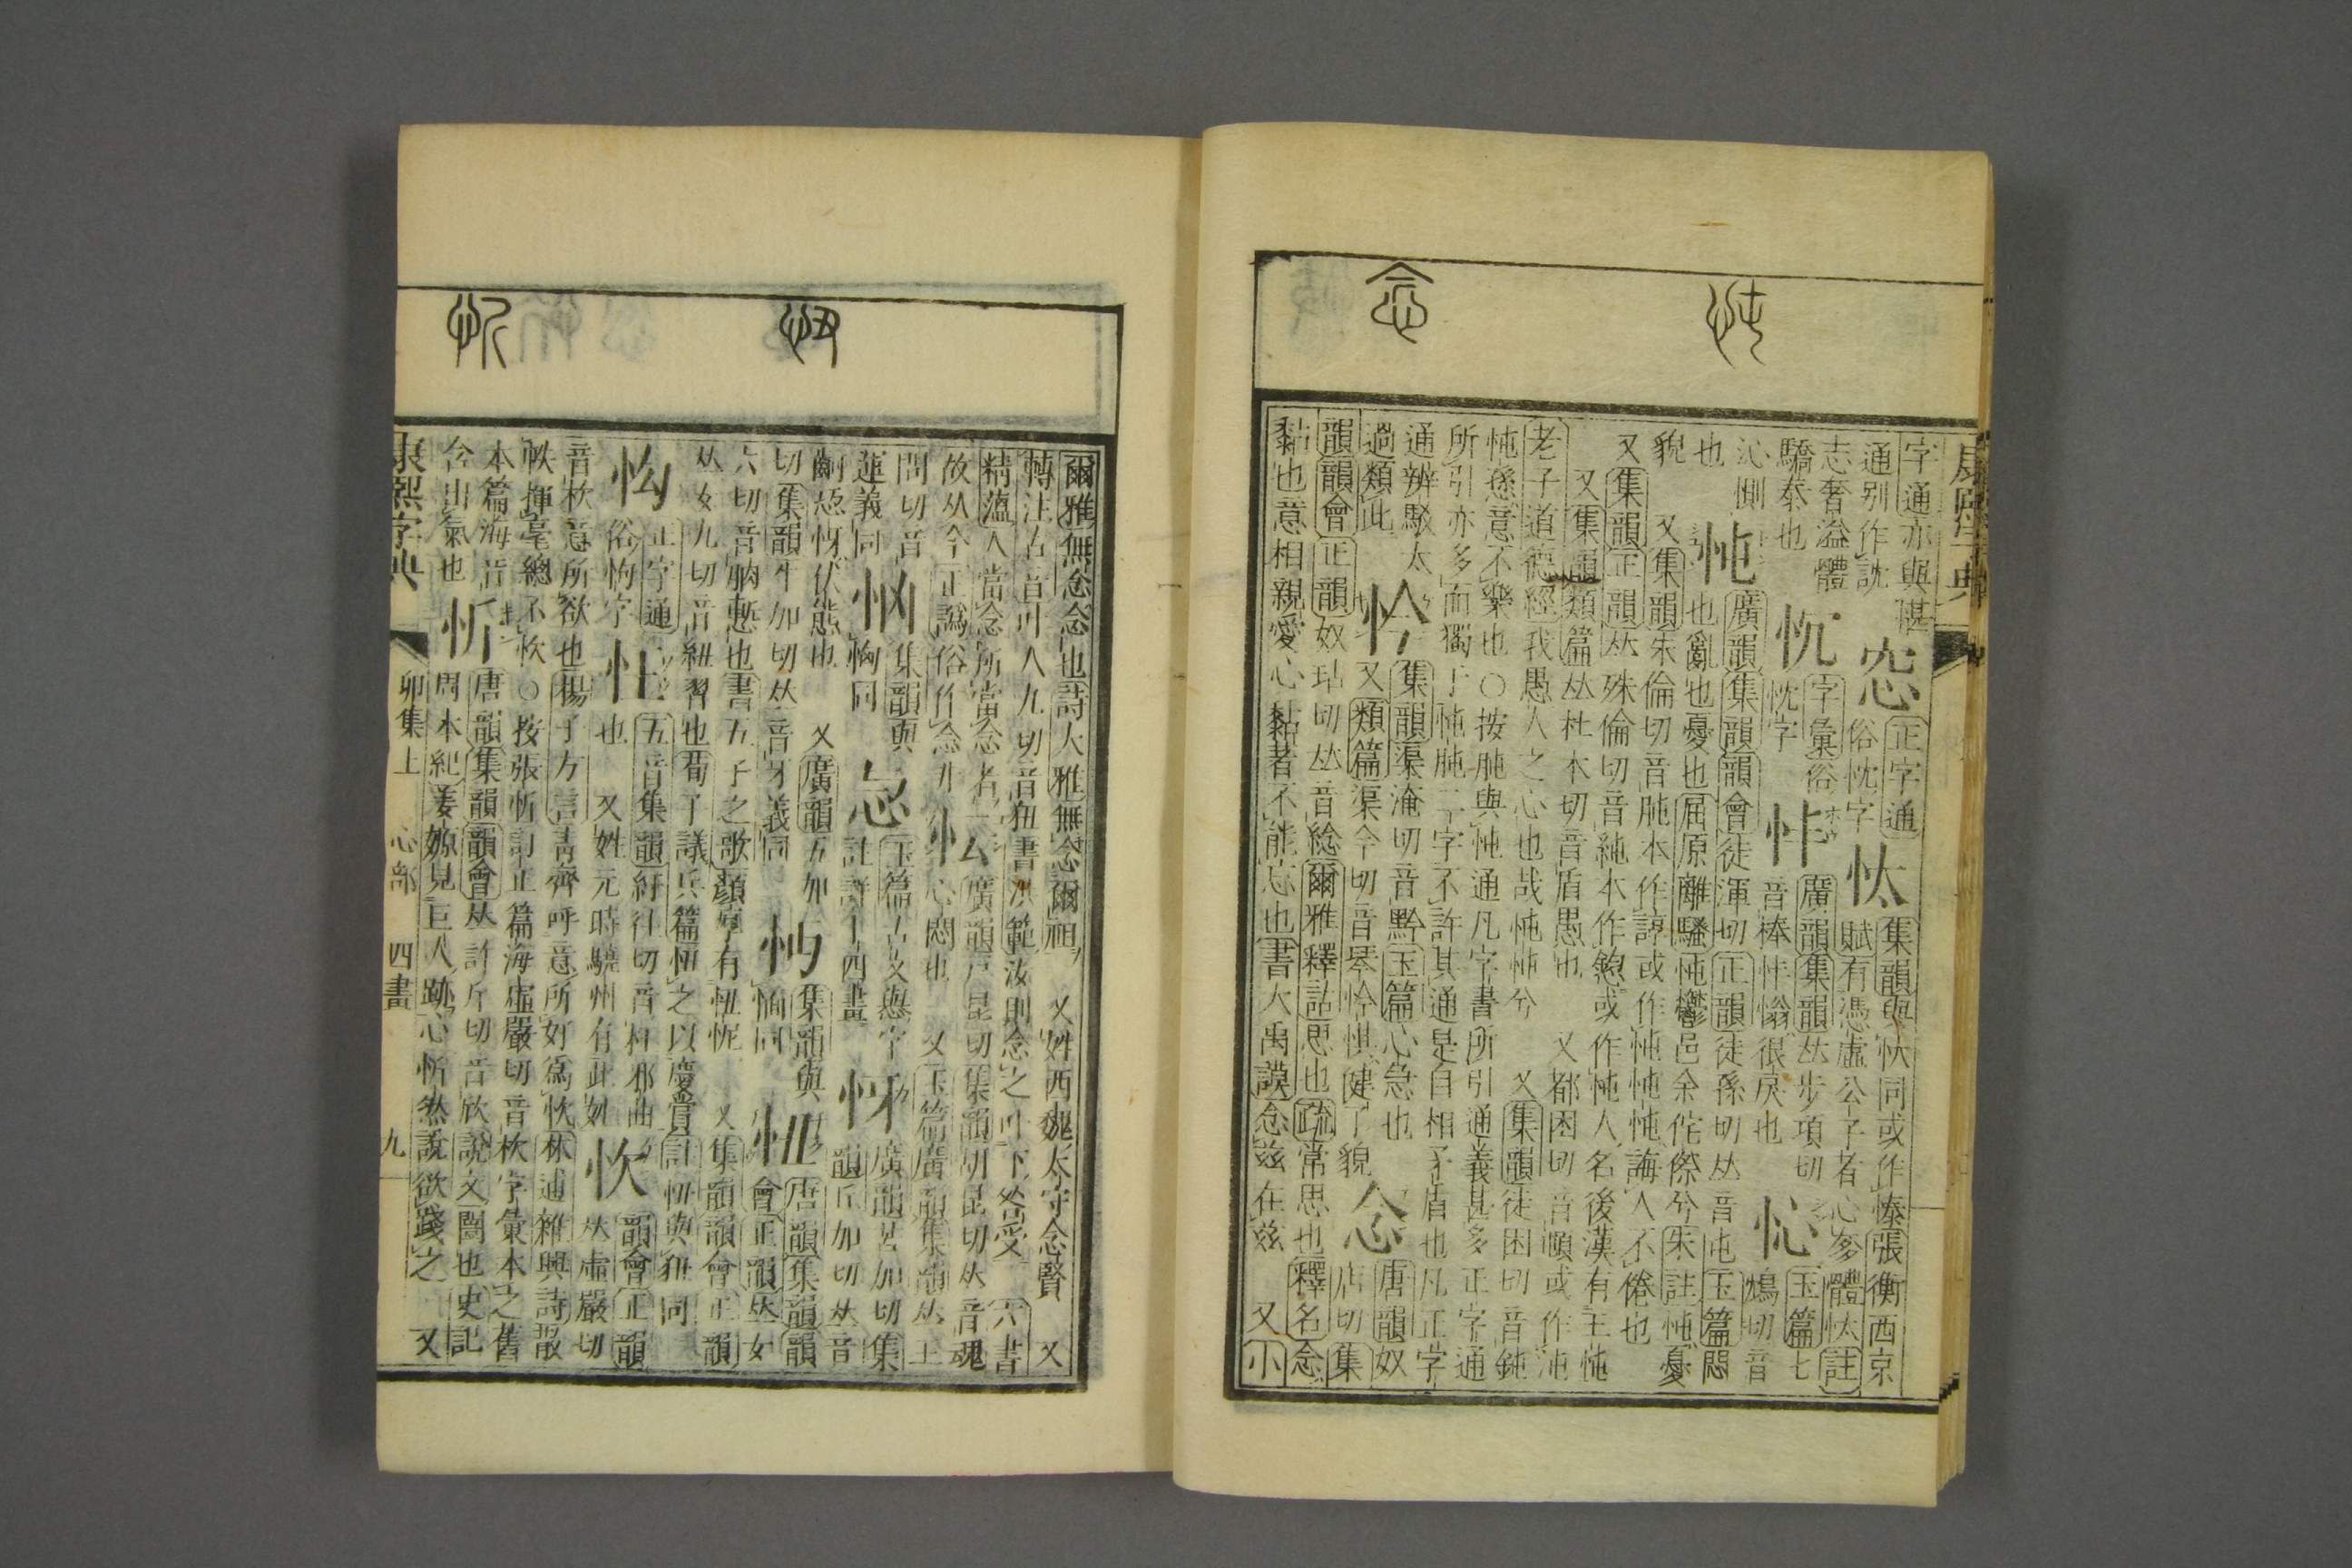 康熙字典
念
忳
字通亦與諶
通别作訦
正字通
俗忱字
忲
集韻與忕同或作愫張衡西京
賦有憑虛公子者心奓體忲註
志奢溢體
驕泰也
字彙俗
忱字
廣韻集韻𠀤步項切
音棒㤄愩很戾也
玉篇七
鴆切音
沁惻
也
忳
廣韻集韻韻會徒渾切正韻徒孫切𠀤音屯玉篇悶
也亂也憂也屈原離騷忳鬱邑余侘傺兮朱註忳憂
貌 又集韻朱倫切音肫本作諄或作忳忳忳誨人不倦也
又集韻正韻𠀤殊倫切音純本作或作忳人名後漢有王忳
又集韻類篇𠀤杜本切音盾愚也 又都困切音頓或作沌
老子道德經我愚人之心也哉忳忳兮 又集韻徒困切音鈍
忳愻意不樂也○按肫與忳通凡字書所引通義甚多正字通
所引亦多而獨于忳肫二字不許其通是自相矛盾也凡正字
通辨駁太
過類此
忴
集韻渠淹切音黔玉篇心急也
又類篇渠今切音琴忴惧健了貌
念
唐韻奴
店切集
韻韻會正韻奴玷切𠀤音稔爾雅釋詁思也疏常思也釋名念
黏也意相親愛心黏著不能忘也書大禹謨念兹在兹 又小
忻
忸
爾雅無念念也詩大雅無念爾祖 又姓西魏太守念賢 又
轉注古音叶八九切音狃書洪範汝則念之叶下咎受 六書
精薀人當念所當念者二
故从今正譌俗作念非
忶
廣韻戸昆切集韻胡昆切𠀤音魂
心悶也 又玉篇廣韻集韻𠀤王
問切音
運義同
集韻與
恟同
玉篇古文與字
註詳十四畫
㤉
廣韻苦加切集
韻丘加切𠀤音
㤉伏態也 又廣韻五加
切集韻牛加切𠀤音牙義同
集韻與
恟同
忸
唐韻集韻韻
會正韻𠀤女
六切音朒慙也書五子之歌顏厚有忸怩 又集韻韻會正韻
𠀤女九切音紐習也荀子議兵篇忸之以慶賞註忸與狃同
正字通
俗恂字
五音集韻紆往切音枉邪曲
也 又姓元時驍州有此姓
忺
韻會正韻
𠀤虛嚴切
音杴意所欲也揚子方言靑齊呼意所好爲忺林逋雜興詩散
帙揮毫總不忺○按張忻訂正篇海虛嚴切音杴字彙本之舊
忻
唐韻集韻韻會𠀤許斤切音欣說文闓也史記
周本紀姜嫄見巨人跡心忻然說欲踐之 又
康熙字典
卯集上
心部
四畫
九